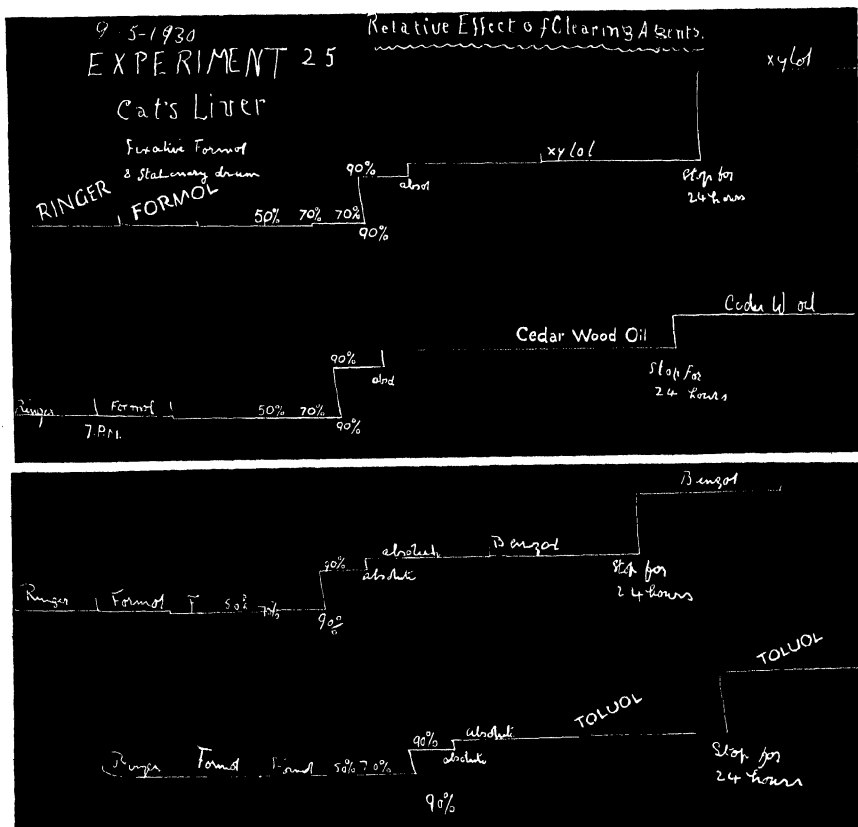 9-5-1930
Relative Effect of Clearing Agents.
EXPERIMENT 25
Cat's Liver
Fixative Formol
& Stationary drum
xylol
RINGER FORMOL 50% 70% 70% 90% 90% absol xylol
Stop for
24 hours
Ringer Formol 50% 70% 90% 90% absol Cedar Wood Oil Cedar W oil
7.P.M.
Stop For
24 hours
Benzol
Ringer Formol F 50% 70% 90% 90% absolute absolute Benzol
Stop for
24 hours
TOLUOL
Ringer Formol Formol 50% 70% 90% absolute absolute TOLUOL
90%
Stop for
24 hours